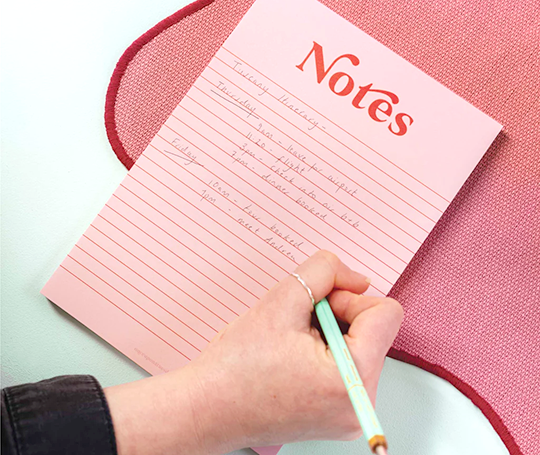 Notes
Tuscany Itinerary -
Thursday
9am - leave for airport
11.20 - flight
3pm - check into air bnb
7pm - dinner booked
Friday
10am - time booked
1pm - meet